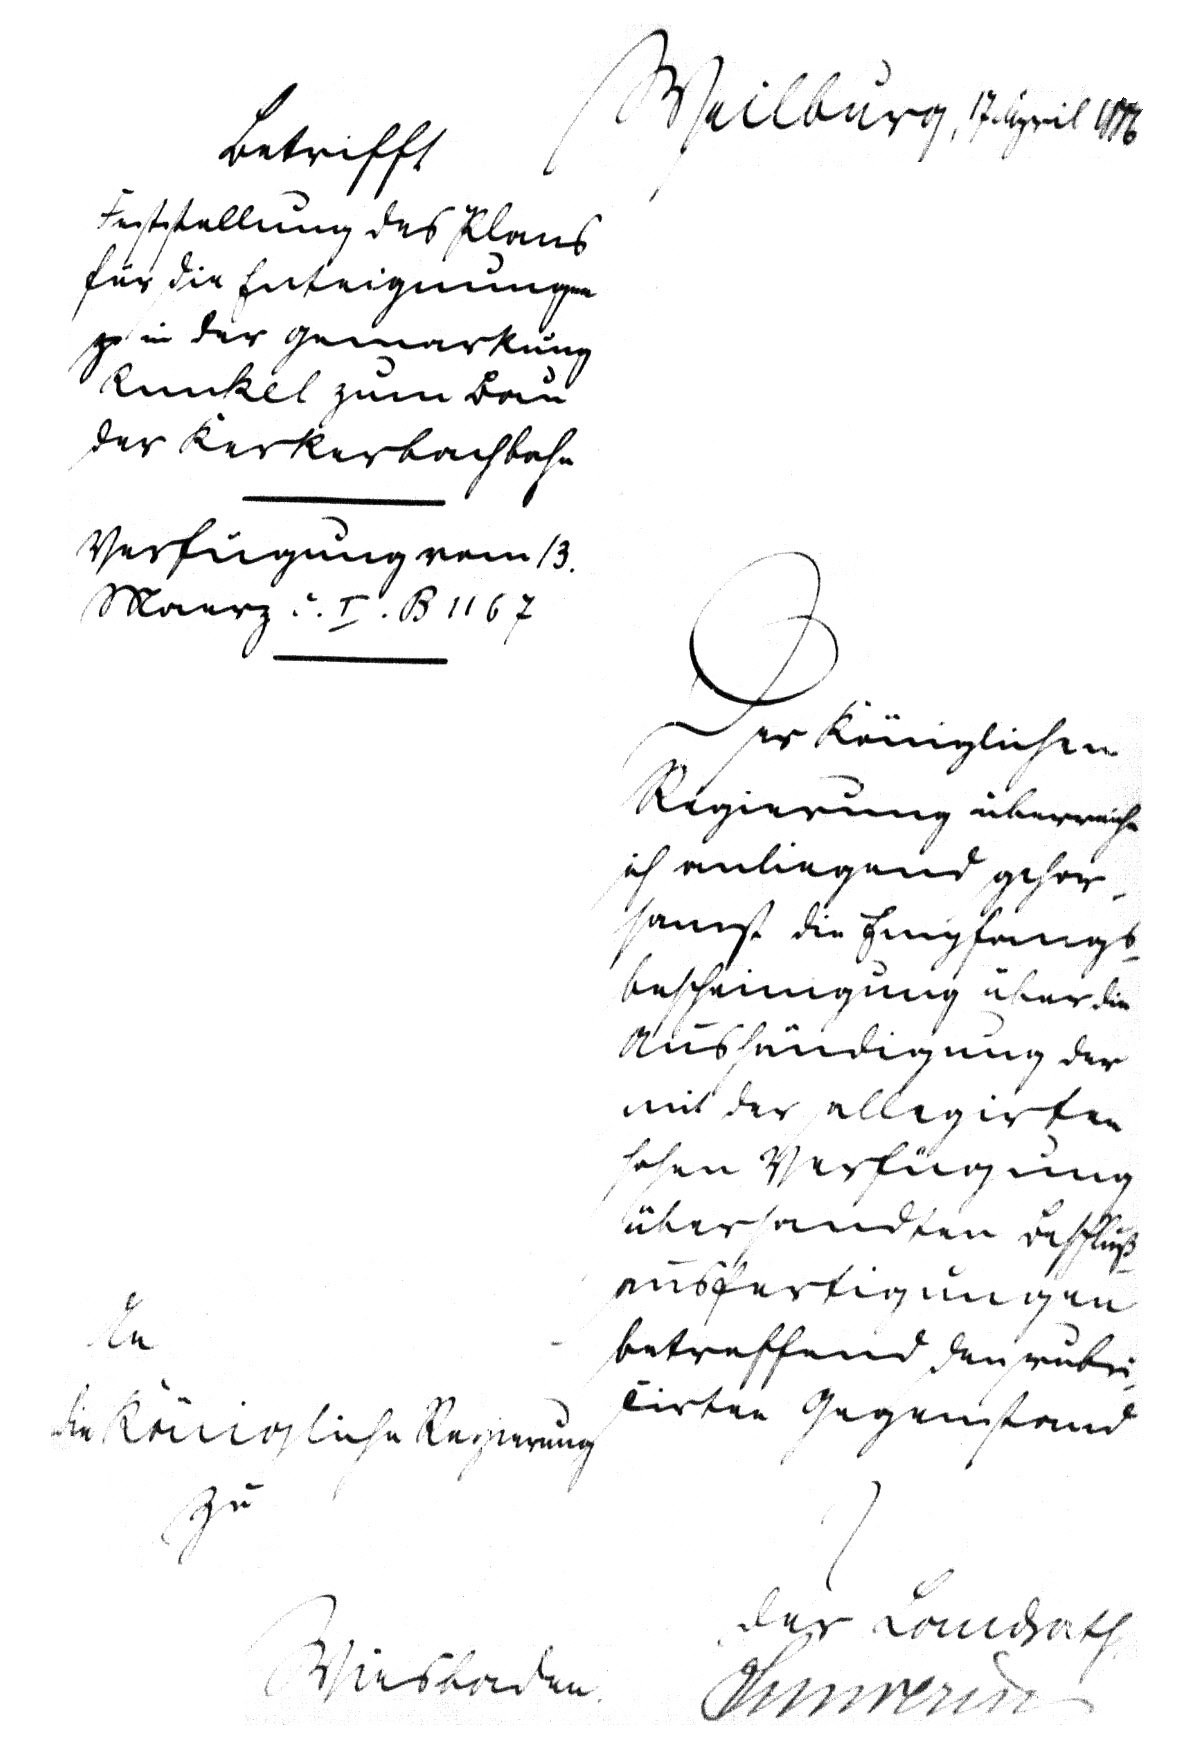 Weilburg, 17. April 1886
Betrifft
Feststellung des Plans
für die Enteignungen
in der Gemarkung
Runkel zum Bau
der Kerkerbachbahn
Verfügung vom 13.
Maerz c. I. B 1167
Der Königlichen
Regierung überreiche
ich anliegend gehor-
samst die Empfangs-
bescheinigung über die
Aushändigung der
mit der allegirten
hohen Verfügung
übersandten Beschluß-
ausfertigungen
betreffend den rubri-
cirten Gegenstand
An
die Königliche Regierung
zu
Wiesbaden.
Der Landrath